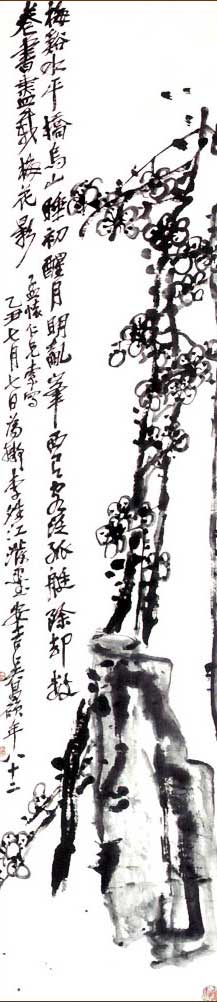 梅谿水平橋烏山睡初醒月明亂峯西有客泛孤艇除却數
卷書盡載梅花影
懷仁兄索寫
乙丑七月七日李江安吉吳昌碩年八十二